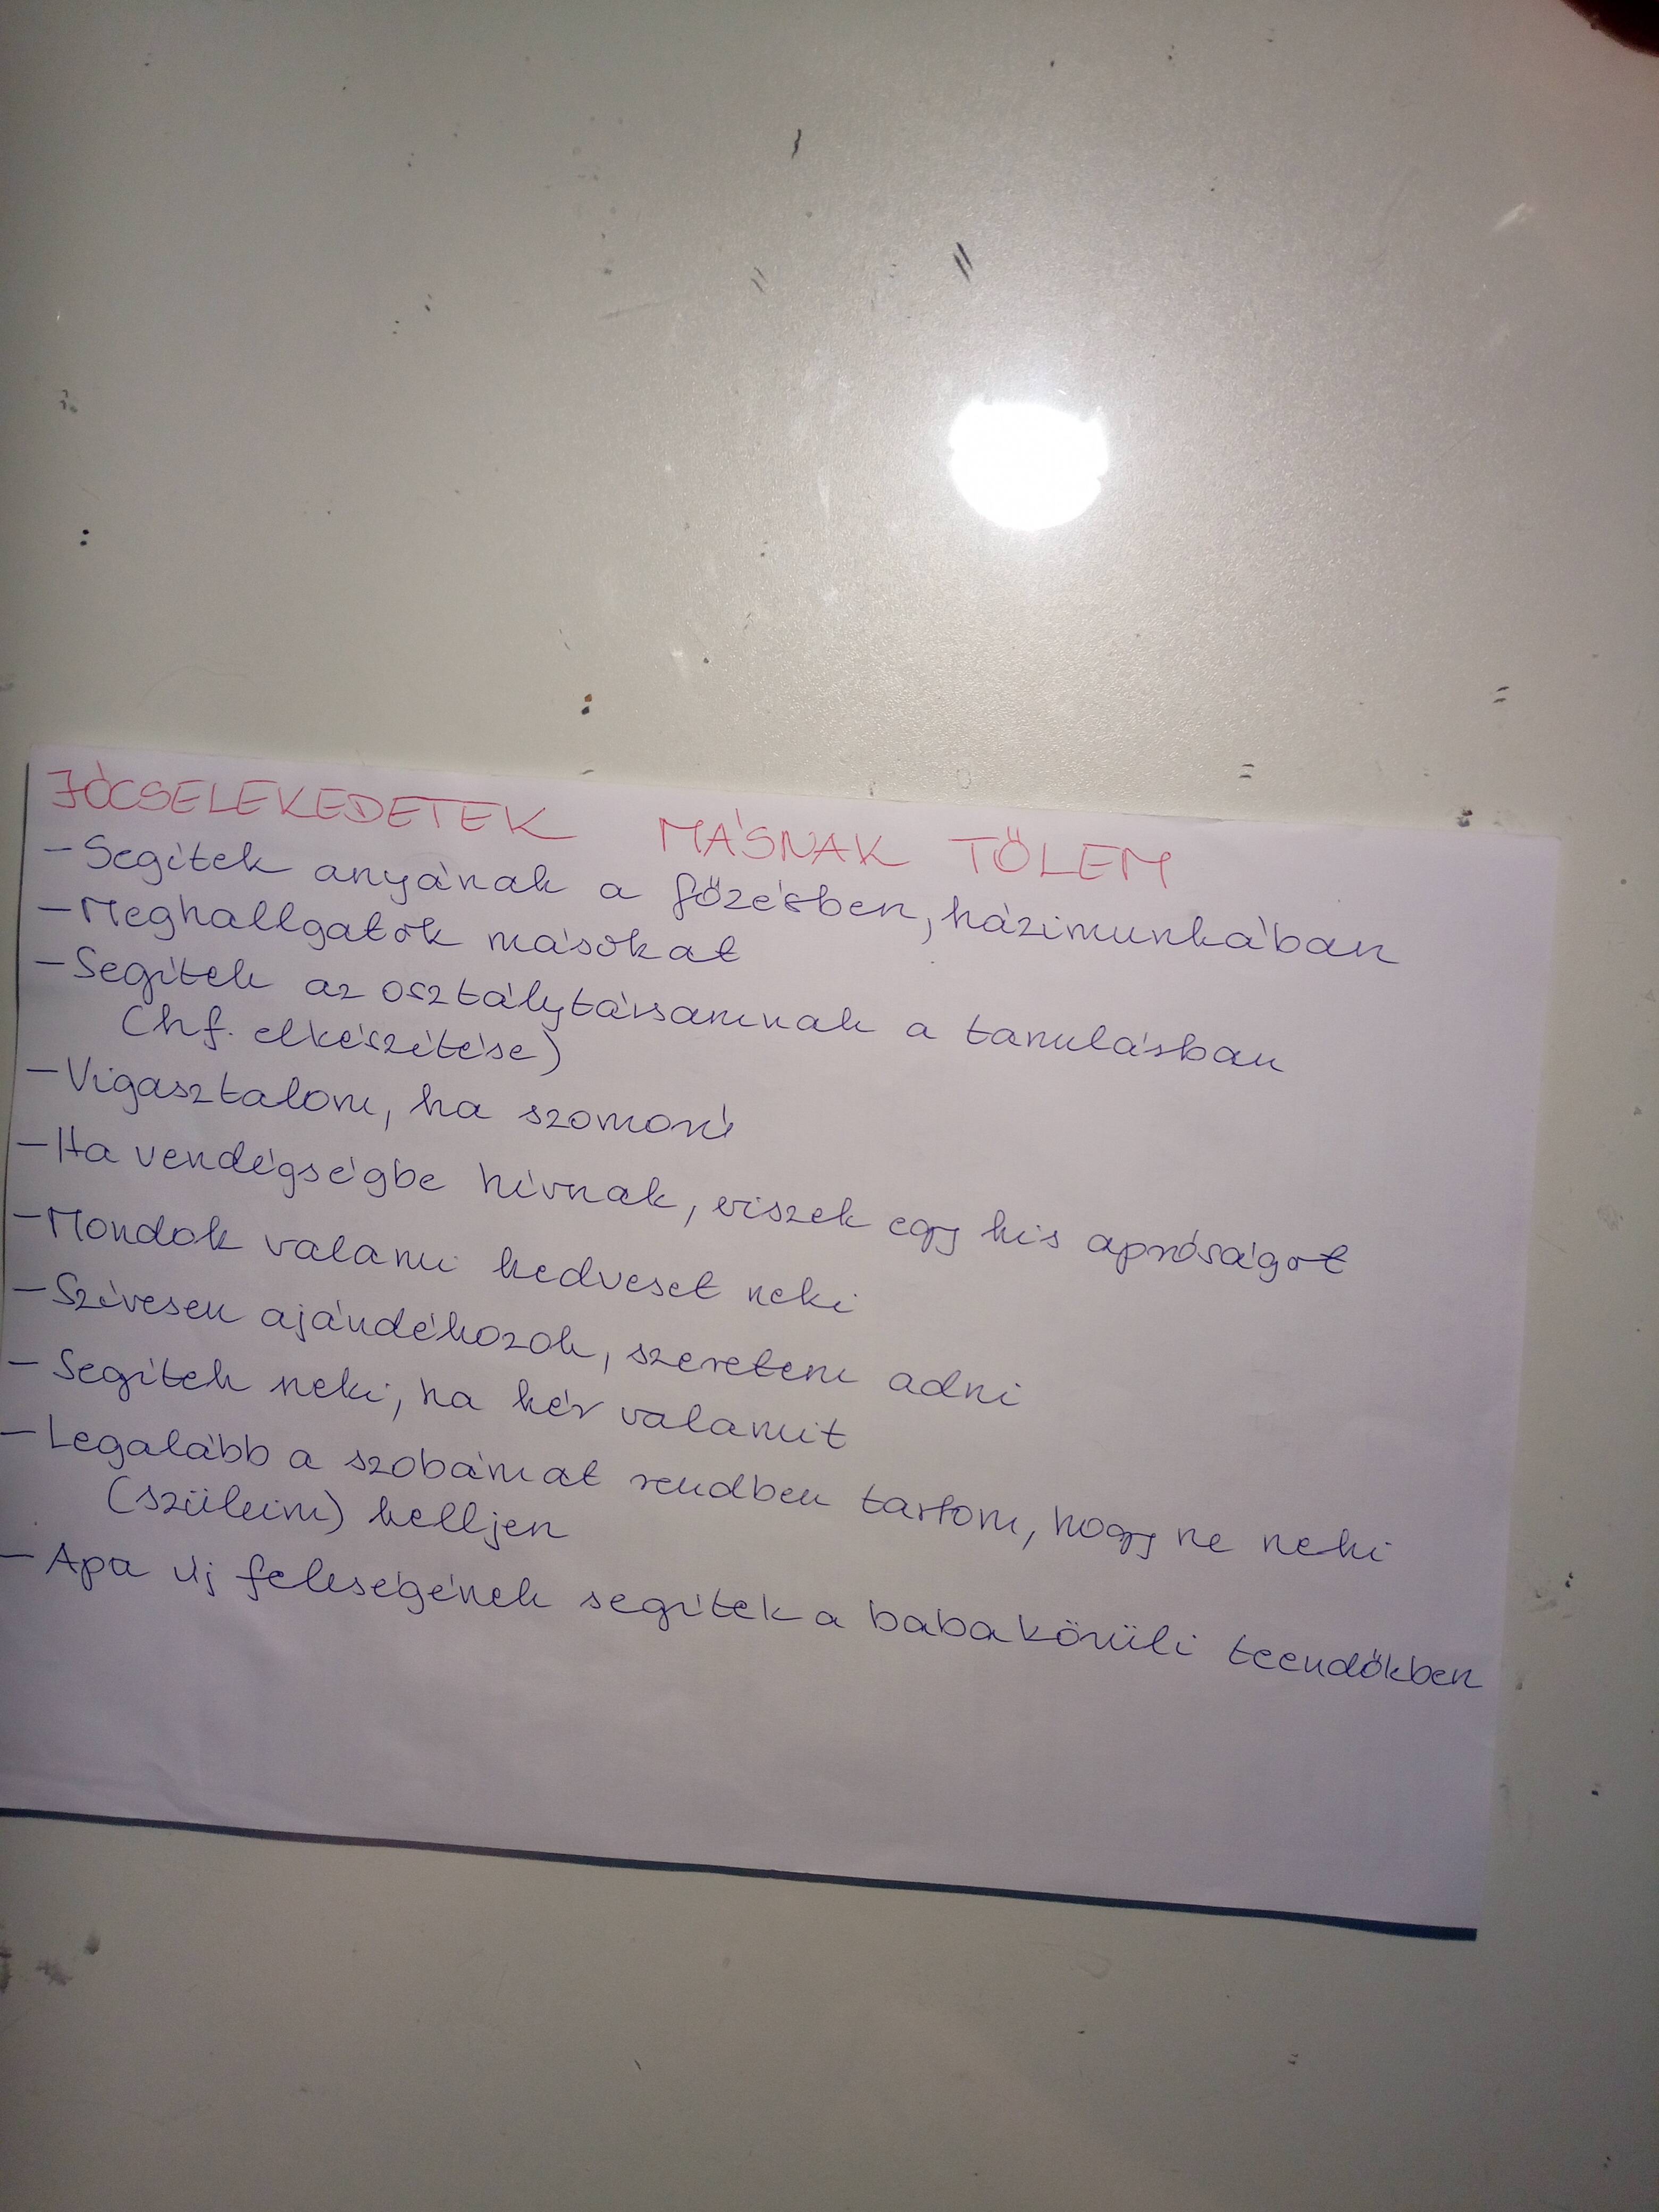 JÓCSELEKEDETEK MÁSNAK TŐLEM
- Segítek anyának a főzésben, házimunkában
- Meghallgatok másokat
- Segítek az osztálytársamnak a tanulásban
(hf. elkészítése)
- Vigasztalom, ha szomorú
- Ha vendégségbe hívnak, viszek egy kis apróságot
- Mondok valami kedveset neki
- Szívesen ajándékozok, szeretem adni
- Segítek neki, ha kér valamit
- Legalább a szobámat rendben tartom, hogy ne neki
(szüleim) kelljen
- Apa új feleségének segítek a baba körüli teendőkben